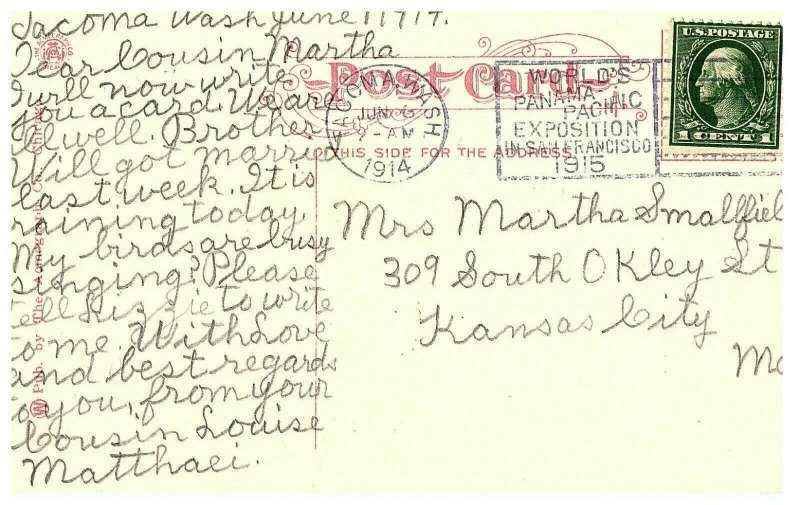 Tacoma Wash June 1 1914.
Dear Cousin Martha
I will now write
you a card. We are
all well. Brother
Will got married
last week. It is
raining today.
My birds are busy
singing? Please
tell Lizzie to write
to me. With Love
and best regards
to you, from your
Cousin Louise
Matthaei.
Pub. by The Acmegraph Co., Chicago
Post Card
THIS SIDE FOR THE ADDRESS
TACOMA, WASH
JUN
-AM
1914
WORLD'S
PANAMA-
PACIFIC
EXPOSITION
IN SAN FRANCISCO
1915
U.S. POSTAGE
1 CENT 1
Mrs Martha Smalffiel
309 South Okley St
Kansas City
Mo